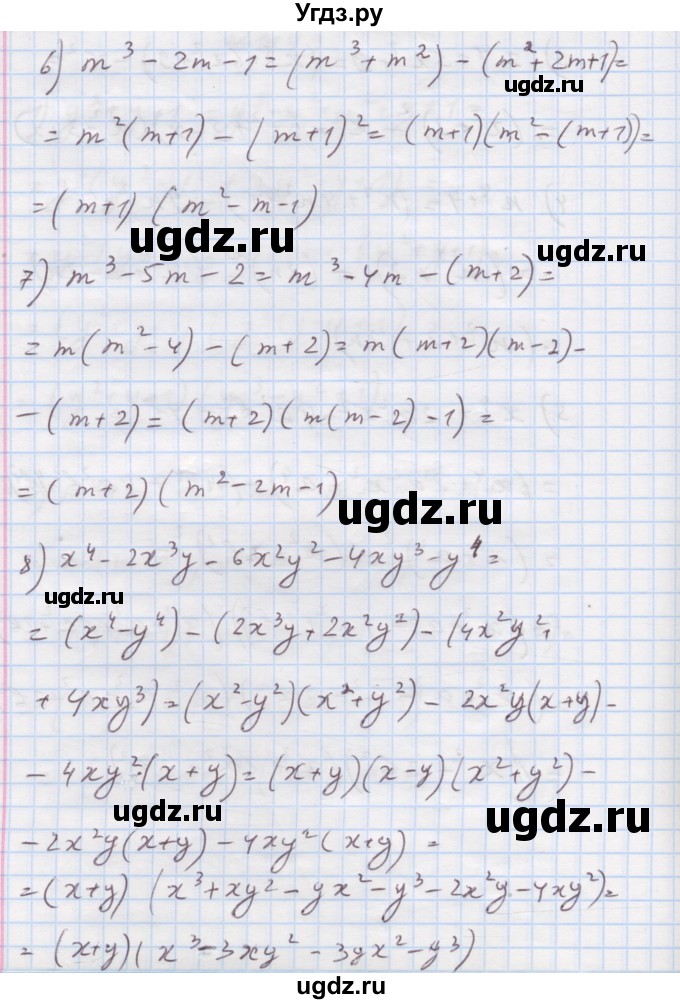 Угдз.ру
6) m³ - 2m - 1 = (m³ + m²) - (m² + 2m + 1) =
ugdz.ru
= m²(m+1) - (m+1)² = (m+1)(m² - (m+1)) =
= (m+1) (m² - m - 1)
ugdz.ru
ugdz.ru
7) m³ - 5m - 2 = m³ - 4m - (m+2) =
= m(m² - 4) - (m+2) = m(m+2)(m-2) -
- (m+2) = (m+2)(m(m-2) - 1) =
= (m+2) (m² - 2m - 1)
ugdz.ru
8) x⁴ - 2x³y - 6x²y² - 4xy³ - y⁴ =
ugdz.ru
= (x⁴ - y⁴) - (2x³y + 2x²y²) - (4x²y² +
+ 4xy³) = (x² - y²)(x² + y²) - 2x²y(x+y) -
- 4xy²(x+y) = (x+y)(x-y)(x² + y²) -
ugdz.ru
- 2x²y(x+y) - 4xy²(x+y) =
= (x+y) (x³ + xy² - yx² - y³ - 2x²y - 4xy²) =
= (x+y)(x³ - 3xy² - 3yx² - y³)
ugdz.ru